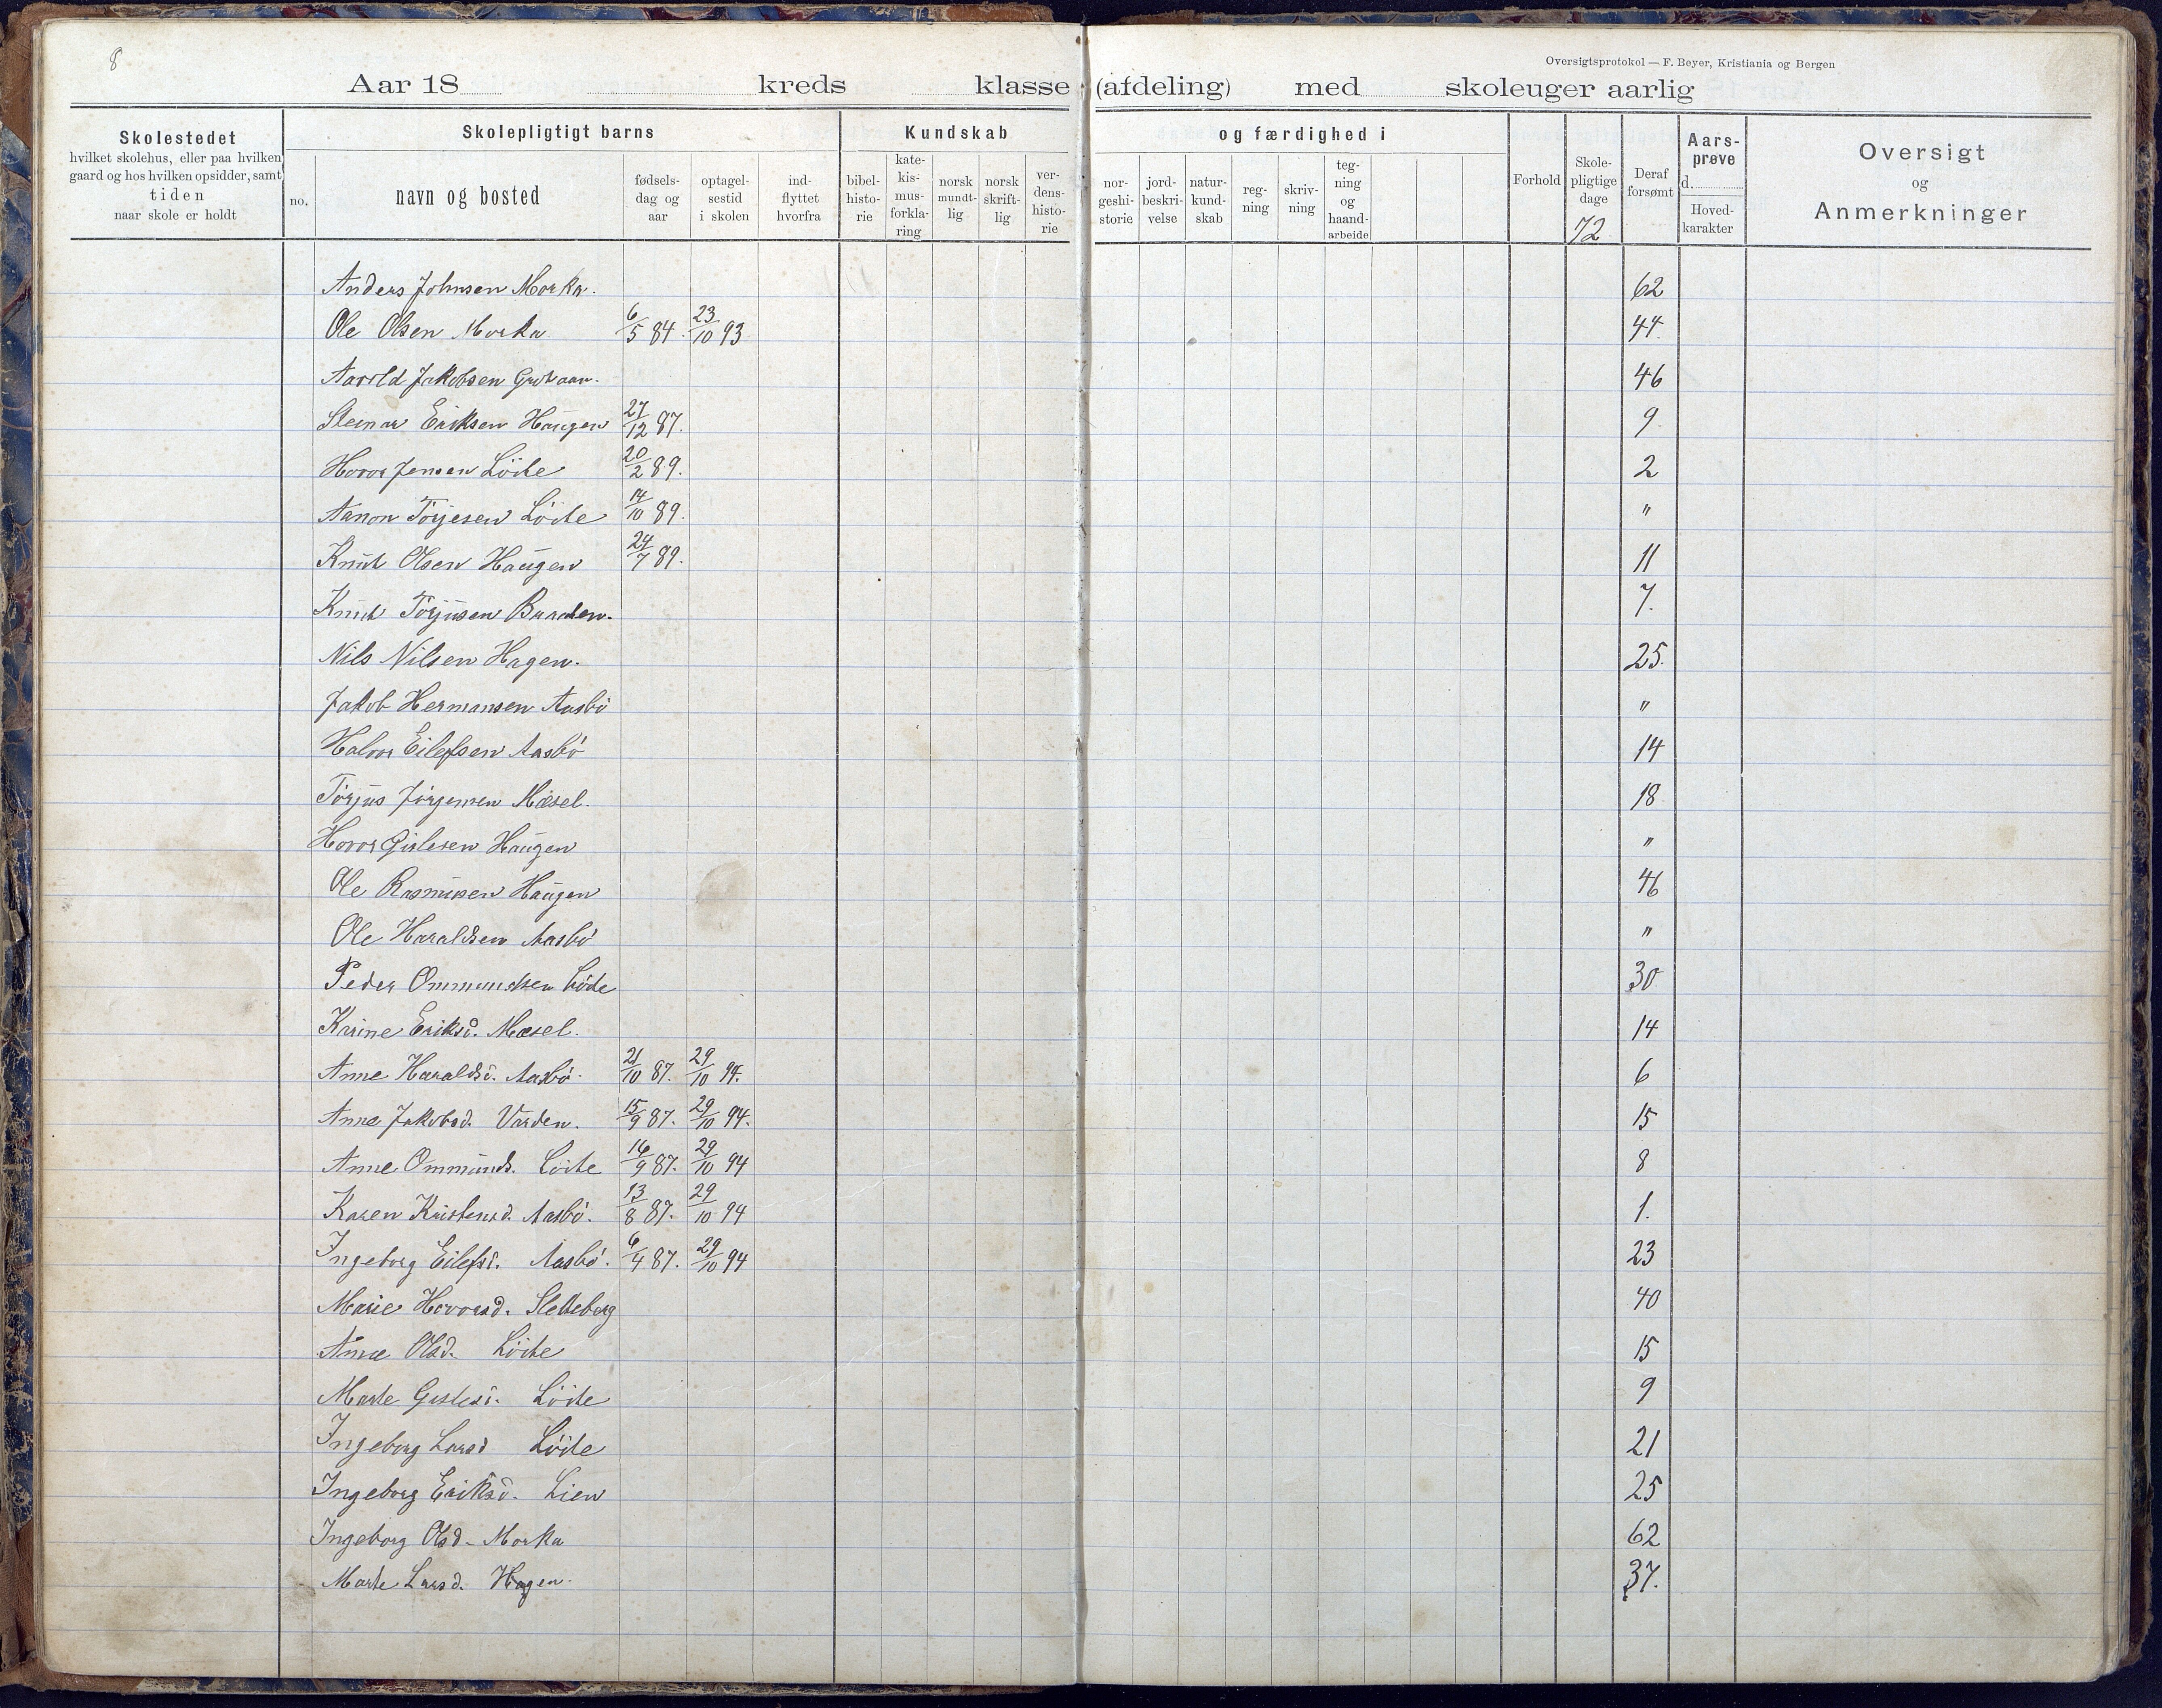 8
Oversigtsprotokol — F. Beyer, Kristiania og Bergen
Aar 18 kreds klasse (afdeling) med skoleuger aarlig
Skolestedet
hvilket skolehus, eller paa hvilken
gaard og hos hvilken opsidder, samt
tiden
naar skole er holdt
no.
Skolepligtigt barns
navn og bosted
fødsels-
dag og
aar
optagel-
sestid
i skolen
ind-
flyttet
hvorfra
Kundskab
bibel-
histo-
rie
kate-
kis-
mus-
forkla-
ring
norsk
mundt-
lig
norsk
skrift-
lig
ver-
dens-
histo-
rie
og færdighed i
nor-
geshi-
storie
jord-
beskri-
velse
natur-
kund-
skab
reg-
ning
skriv-
ning
teg-
ning
og
haand-
arbeide
Forhold
Skole-
pligtige
dage
72
Deraf
forsømt
Aars-
prøve
d.
Hoved-
karakter
Oversigt
og
Anmerkninger
Anders Johnsen Morka. 62
Ole Olsen Morka 6/5 84. 23/10 93 44.
Jakobsen 46
Steinar Eriksen Haugen 27/12 87. 9.
Hovor Jensen Löite 20/2 89. 2
Aanon Torjesen Löite 14/10 89. "
Knut Olsen Haugen 24/7 89. 11
Knut Torjusen 7.
Nils Nilsen Hagen. 25.
Jakob Hermansen Aasbö "
Halvor Eilefsen Aasbö 14
Torjus Jörgensen Mæsel. 18
Hovor Gislesen Haugen "
Ole Rasmusen Haugen 46
Ole Haraldsen Aasbö "
Peder Ommundsen Löite 30
Karine Eriksd. Mæsel. 14
Anne Haraldsd. Aasbö. 21/10 87. 29/10 94. 6
Anne Jakobsd. Varden. 15/9 87. 29/10 94. 15
Anne Ommunds. Löite 16/9 87. 29/10 94 8
Karen Kristensd. Aasbö. 13/8 87. 29/10 94 1.
Ingeborg Eilefsd. Aasbö. 6/4 87. 29/10 94 23
Marie Hovorsd. Sletteberg 40
Anne Olsd. Löite 15
Marte Gislesd. Löite 9
Ingeborg Larsd Löite 21
Ingeborg Eriksd. Lien 25
Ingeborg Olsd. Morka 62
Marte Larsd. Hagen. 37.